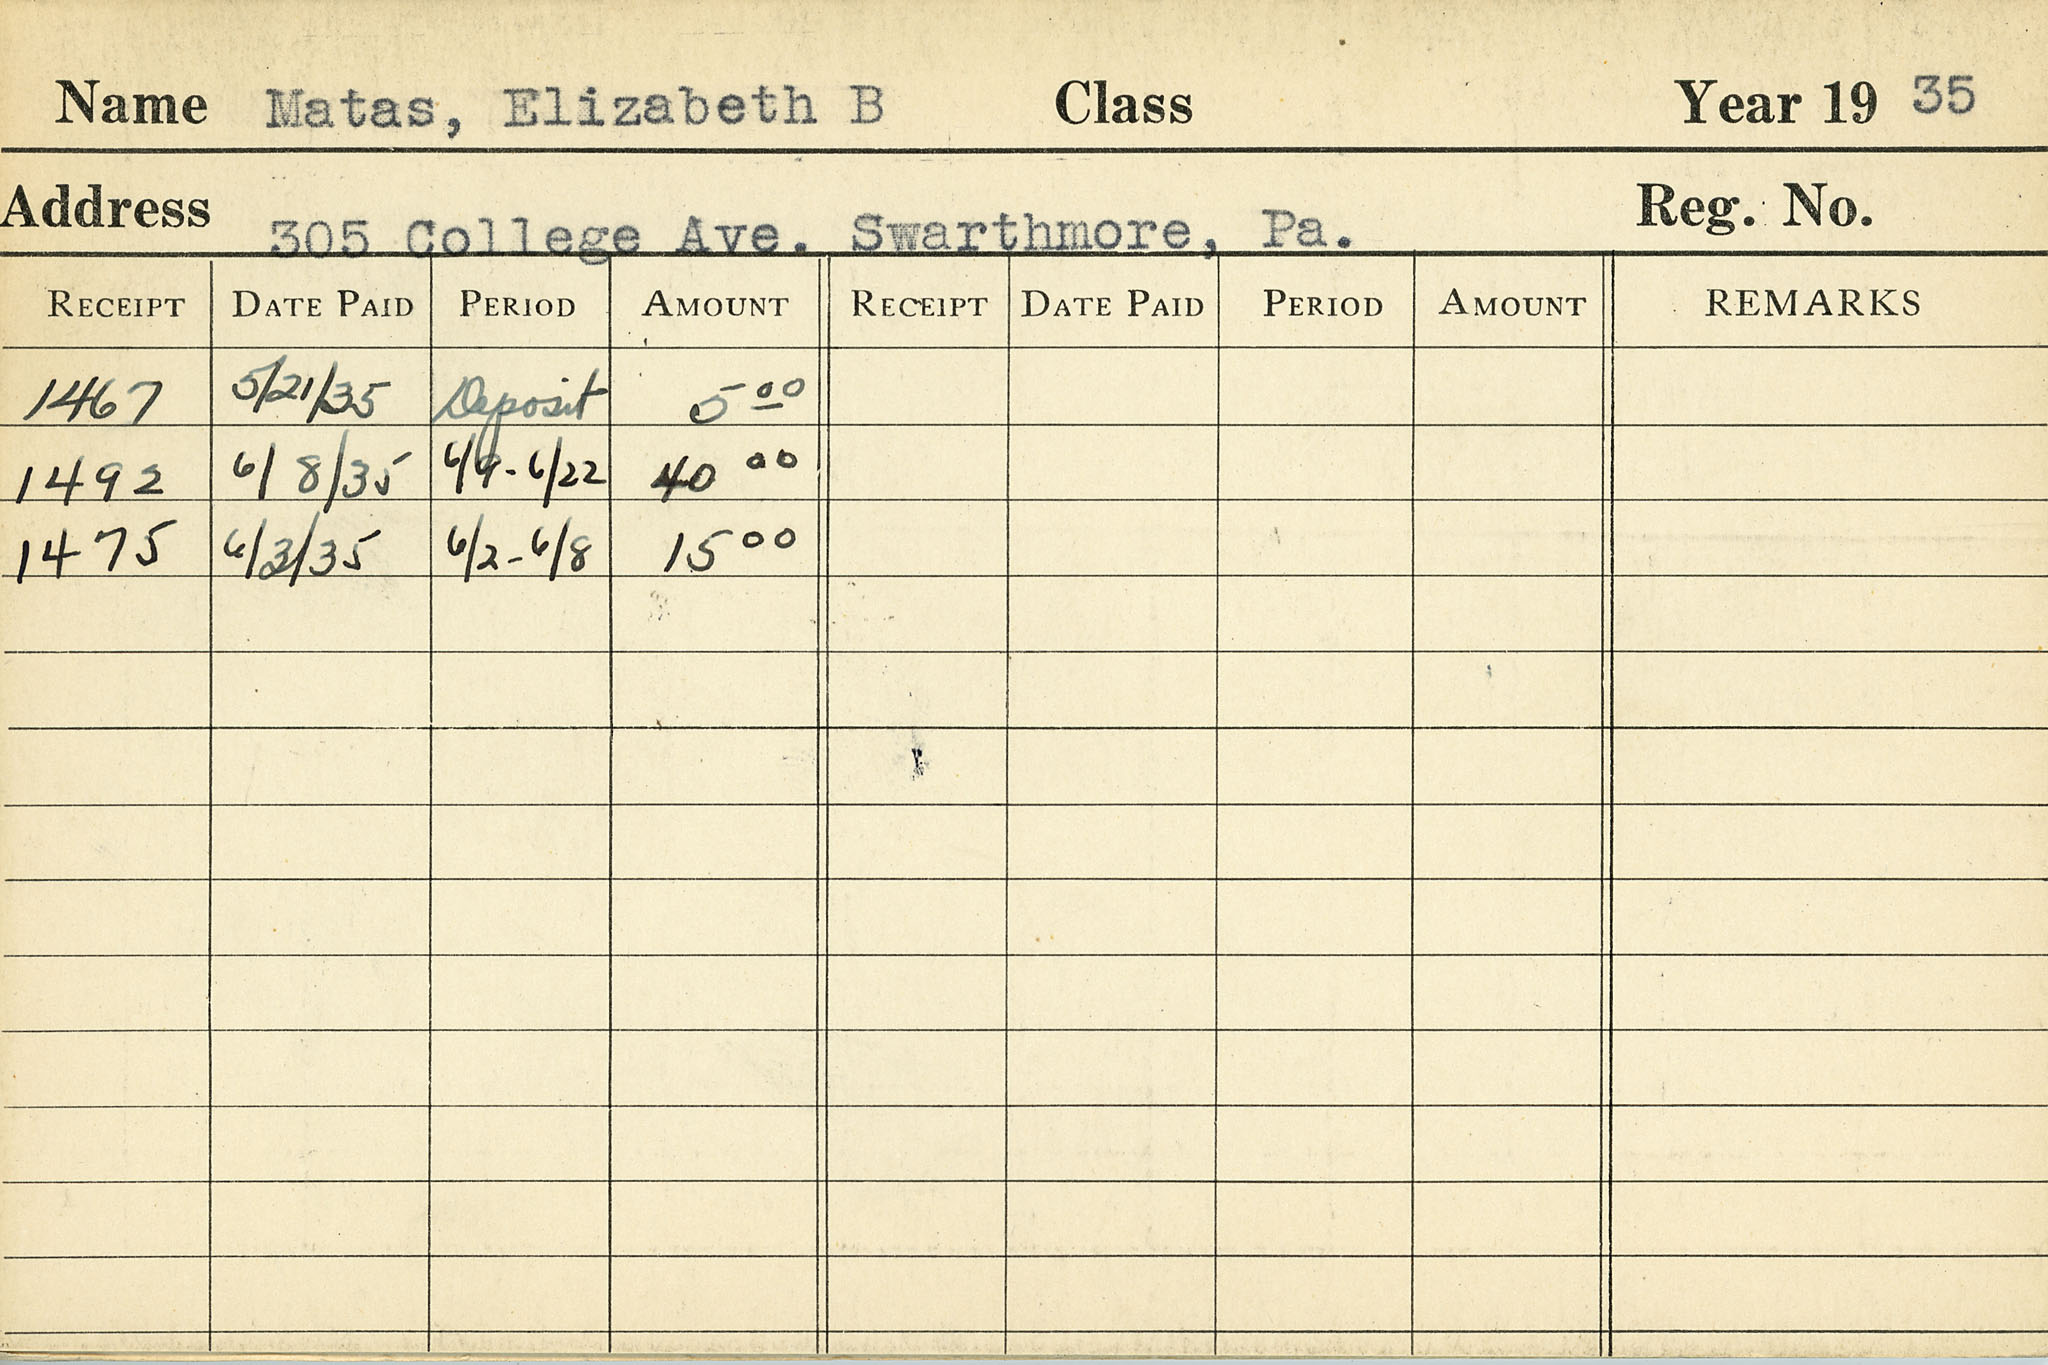 Name Matas, Elizabeth B Class Year 19 35
Address 305 College Ave. Swarthmore, Pa. Reg. No.
RECEIPT DATE PAID PERIOD AMOUNT RECEIPT DATE PAID PERIOD AMOUNT REMARKS
1467 5/21/35 Deposit 5 00
1492 6/8/35 6/9-6/22 40 00
1475 6/3/35 6/2-6/8 15 00